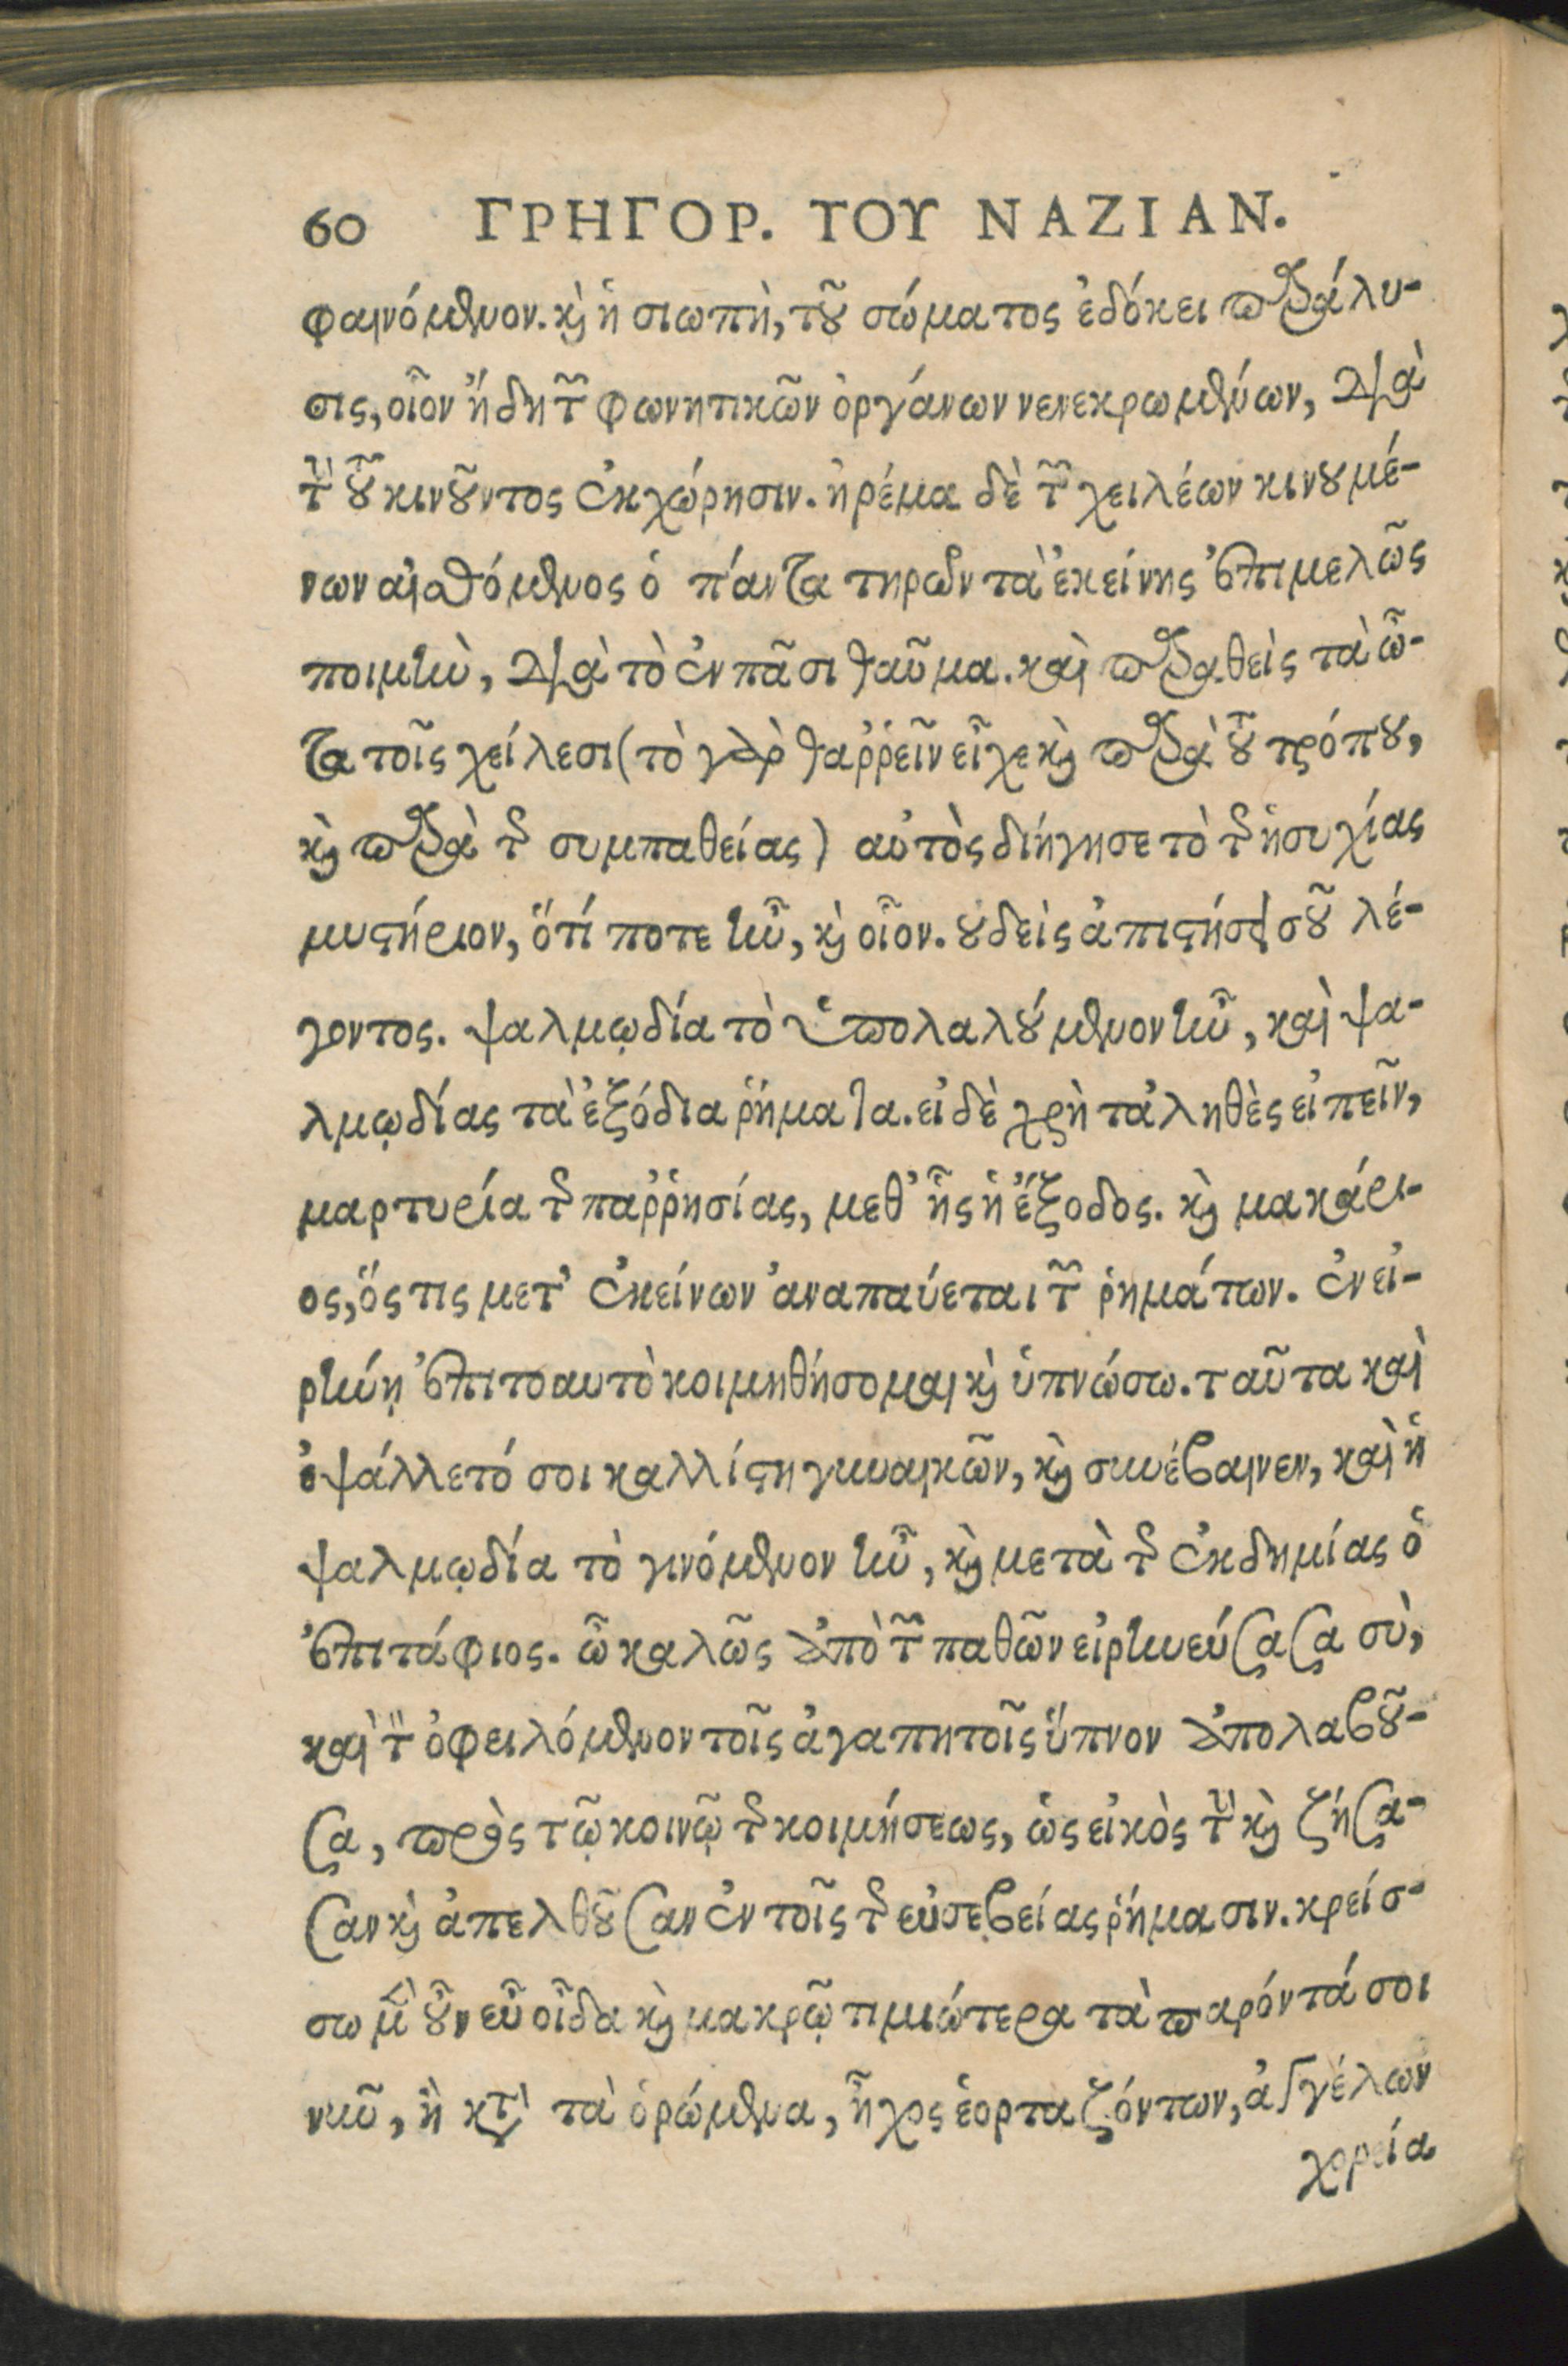 60 ΓΡΗΓΟΡ. ΤΟΥ ΝΑΖΙΑΝ.
φαινόμενον. καὶ ἡ σιωπὴ, τοῦ σώματος ἐδόκει παράλυ-
σις, οἷον ἤδη τῶν φωνητικῶν ὀργάνων νενεκρωμένων, διὰ
τὴν τοῦ κινοῦντος ἐκχώρησιν. ἠρέμα δὲ τῶν χειλέων κινουμέ-
νων αἰσθόμενος ὁ πάντα τηρῶν τὰ ἐκείνης ἐπιμελῶς
ποιμὴν, διὰ τὸ ἐν πᾶσι θαῦμα. καὶ παραθεὶς τὰ ὦ-
τα τοῖς χείλεσι (τὸ γὰρ θαῤῥεῖν εἶχε καὶ παρὰ τοῦ τρόπου,
καὶ παρὰ τῆς συμπαθείας) αὐτὸς διήγησε τὸ τῆς ἡσυχίας
μυστήριον, ὅ τί ποτε ἦν, καὶ οἷον. οὐδεὶς ἀπιστήσει σοῦ λέ-
γοντος. ψαλμῳδία τὸ ὑπολαλούμενον ἦν, καὶ ψα-
λμῳδίας τὰ ἐξόδια ῥήματα. εἰ δὲ χρὴ τἀληθὲς εἰπεῖν,
μαρτυρία τῆς παῤῥησίας, μεθ' ἧς ἡ ἔξοδος. καὶ μακάρι-
ος, ὅς τις μετ' ἐκείνων ἀναπαύεται τῶν ῥημάτων. ἐν εἰ-
ρήνῃ ἐπιτοαυτὸ κοιμηθήσομαι καὶ ὑπνώσω. ταῦτα καὶ
ἐψάλλετό σοι καλλίστη γυναικῶν, καὶ συνέβαινεν, καὶ ἡ
ψαλμῳδία τὸ γινόμενον ἦν, καὶ μετὰ τῆς ἐκδημίας ὁ
ἐπιτάφιος. ὦ καλῶς ἀπὸ τῶν παθῶν εἰρηνεύσασα σὺ,
καὶ τὸν ὀφειλόμενον τοῖς ἀγαπητοῖς ὕπνον ἀπολαβοῦ-
σα, πρὸς τῷ κοινῷ τῆς κοιμήσεως, ὡς εἰκὸς τὴν καὶ ζήσα-
σαν καὶ ἀπελθοῦσαν ἐν τοῖς τῆς εὐσεβείας ῥήμασιν. κρείσ-
σω μὲν οὖν εὖ οἶδα καὶ μακρῷ τιμιώτερα τὰ παρόντά σοι
νῦν, ἢ κατὰ τὰ ὁρώμενα, ἦχος ἑορταζόντων, ἀγγέλων
χορεία